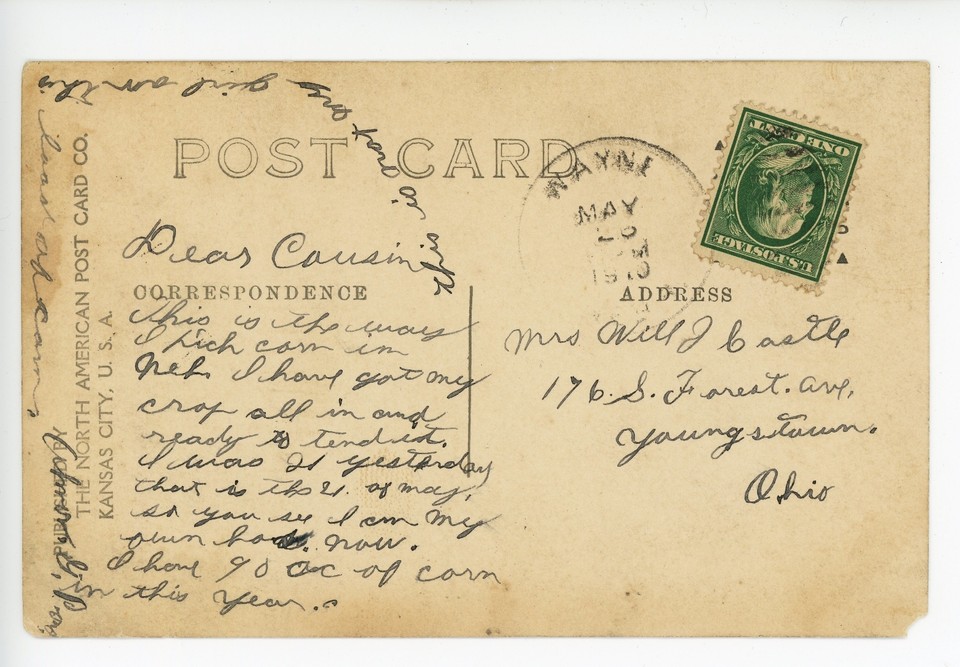 POST CARD
Dear Cousin
CORRESPONDENCE
This is the way
I pick corn in
Neb. I have got my
crop all in and
ready to tend it.
I was 21 yesterday
that is the 21. of may,
so you see I am my
own now.
I have 90 ac of corn
in this year..
this is not my
girl on this
load of corn.
PUBLISHED BY
THE NORTH AMERICAN POST CARD CO.
KANSAS CITY, U. S. A.
WAYNE
MAY
1910
U.S. POSTAGE
ONE CENT
ADDRESS
Mrs Will J Castle
176. S. Forest. ave,
Youngstown.
Ohio